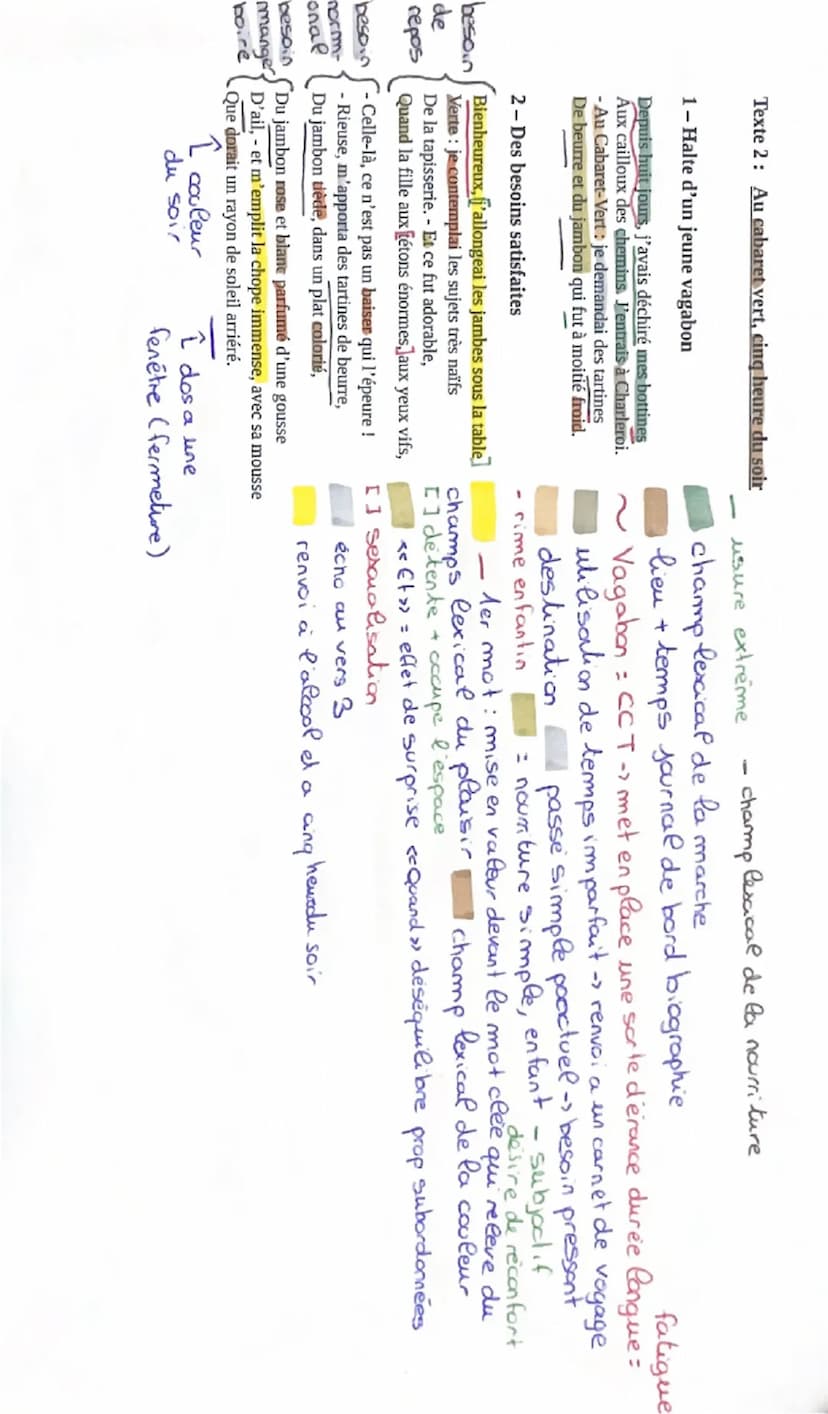 Texte 2 : Au cabaret vert, cinq heure du soir
1 – Halte d'un jeune vagabond
Depuis huit jours, j'avais déchiré mes bottines
Aux cailloux des chemins. J'entrais à Charleroi.
- Au Cabaret-Vert : je demandai des tartines
De beurre et du jambon qui fut à moitié froid.
2 – Des besoins satisfaites
besoin de repos
Bienheureux, [j'allongeai les jambes sous la table]
Verte : je contemplai les sujets très naïfs
De la tapisserie. - Et ce fut adorable,
Quand la fille aux [tétons énormes,] aux yeux vifs,
besoin
- Celle-là, ce n'est pas un baiser qui l'épeure !
normi-onal
- Rieuse, m'apporta des tartines de beurre,
Du jambon tiède, dans un plat colorié,
besoin manger boire
Du jambon rose et blanc parfumé d'une gousse
D'ail, - et m'emplir la chope immense, avec sa mousse
Que dorait un rayon de soleil arriéré.
↑ couleur du soir
↑ dos a une fenêtre (fermeture)
— usure extrême - champ lexical de la nourriture
champ lexical de la marche
lieu + temps journal de bord biographie
~ Vagabon : CCT -> met en place une sorte d'érance durée longue = fatigue
utilisation de temps imparfait -> renvoi a un carnet de voyage
destination passé simple ponctuel -> besoin pressant
- rime enfantin = nourriture simple, enfant - subjoctif
désire de réconfort
— 1er mot : mise en valeur devant le mot clée qui relève du
champs lexical du plaisir champ lexical de la couleur
[ ] détente + occupe l'espace
«Et» = effet de surprise «Quand» déséquilibre prop subordonnées
[ ] sexualisation
écho au vers 3
renvoi à l'alcool et a cinq heure du soir